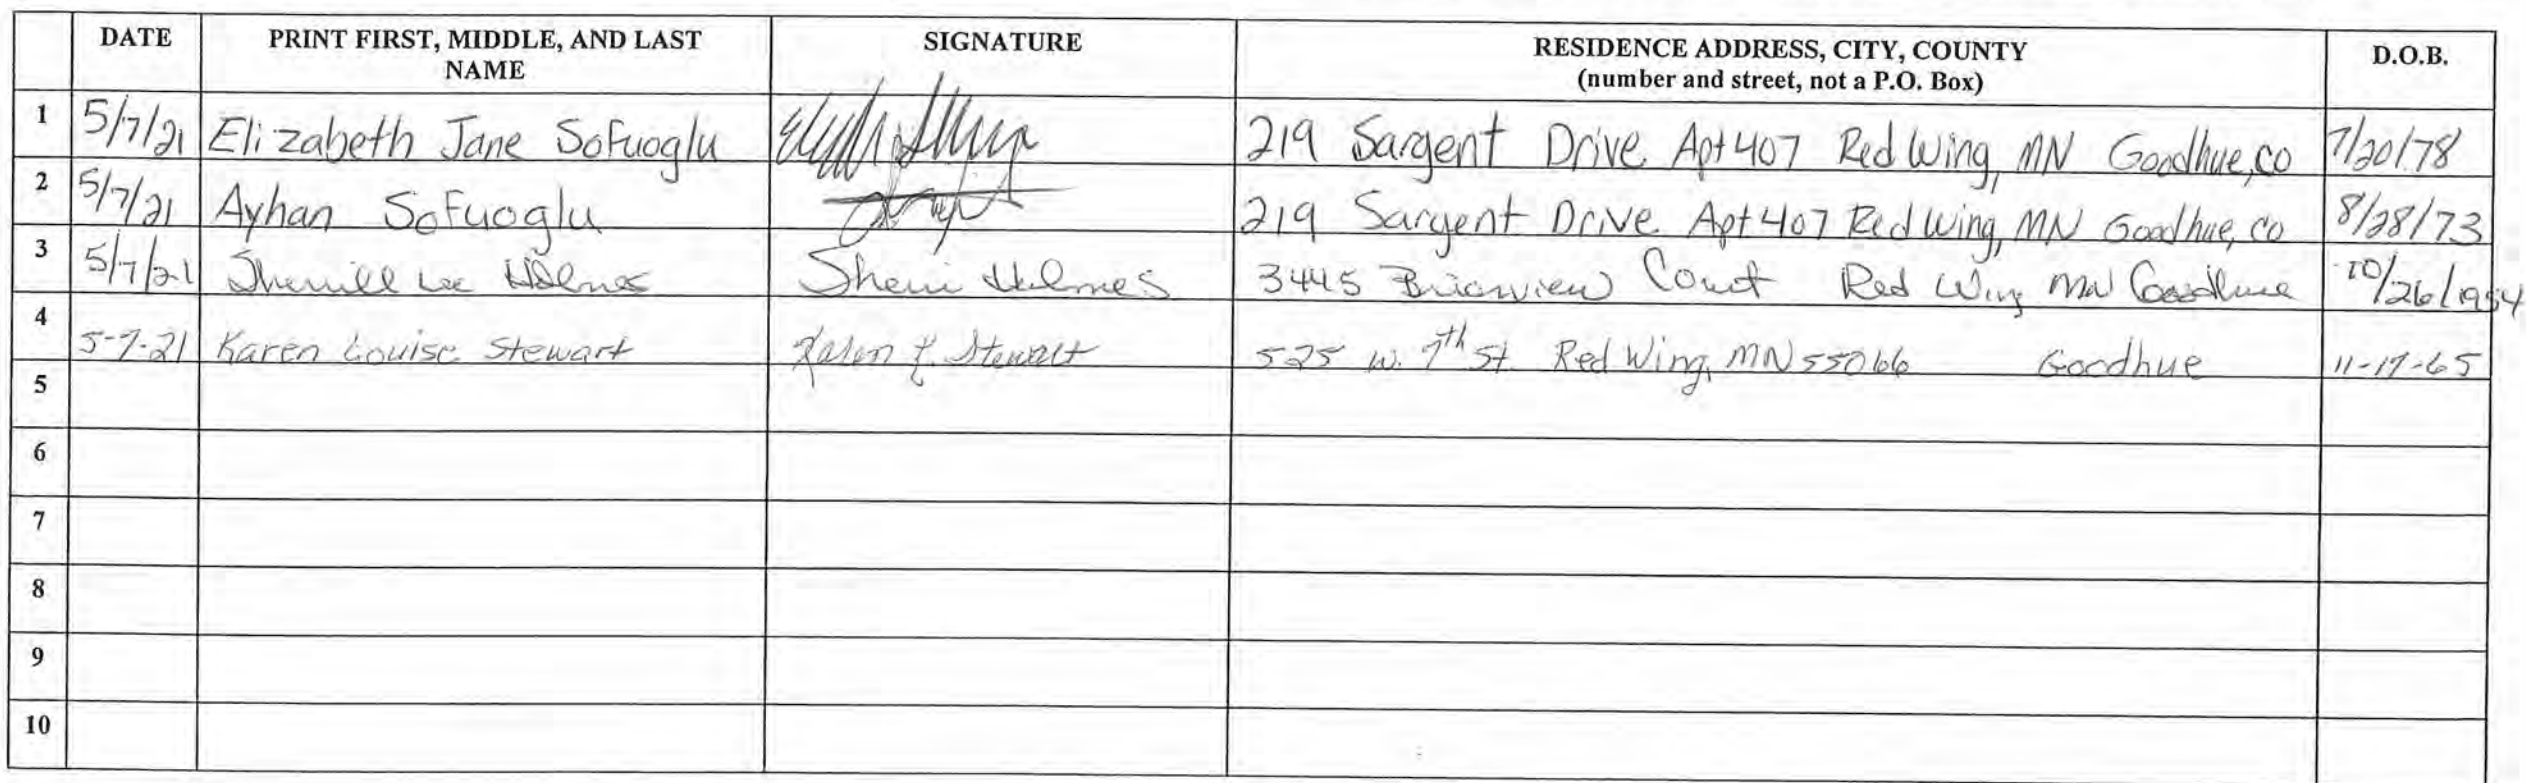 DATE PRINT FIRST, MIDDLE, AND LAST NAME SIGNATURE RESIDENCE ADDRESS, CITY, COUNTY (number and street, not a P.O. Box) D.O.B.
1 5/7/21 Elizabeth Jane Sofuoglu 219 Sargent Drive Apt 407 Red Wing, MN Goodhue, co 7/20/78
2 5/7/21 Ayhan Sofuoglu 219 Sargent Drive Apt 407 Red Wing, MN Goodhue, co 8/28/73
3 5/7/21 Sherrill Lee Holmes Sherri Holmes 3445 Briarview Court Red Wing MN Goodhue 10/26/1954
4 5-7-21 Karen Louise Stewart Karen L. Stewart 525 W. 7th St. Red Wing, MN 55066 Goodhue 11-17-65
5
6
7
8
9
10